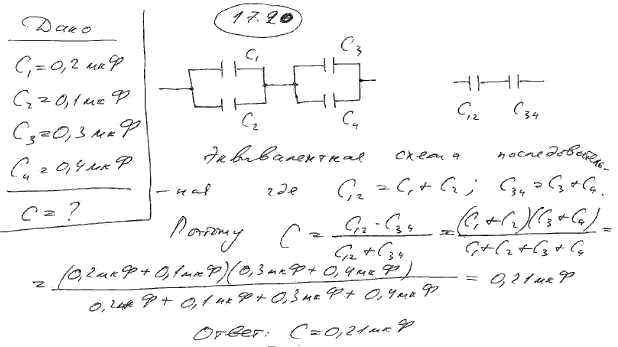 17.20
Дано
C₁=0,2 мкФ
C₂=0,1 мкФ
C₃=0,3 мкФ
C₄=0,4 мкФ
C=?
C₁ C₃
C₂ C₄
C₁₂ C₃₄
Эквивалентная схема последователь-
-ная где C₁₂=C₁+C₂; C₃₄=C₃+C₄.
Поэтому C = (C₁₂·C₃₄)/(C₁₂+C₃₄) = ((C₁+C₂)(C₃+C₄))/(C₁+C₂+C₃+C₄) =
= ((0,2мкФ+0,1мкФ)(0,3мкФ+0,4мкФ))/(0,2мкФ+0,1мкФ+0,3мкФ+0,4мкФ) = 0,21мкФ
Ответ: C=0,21мкФ